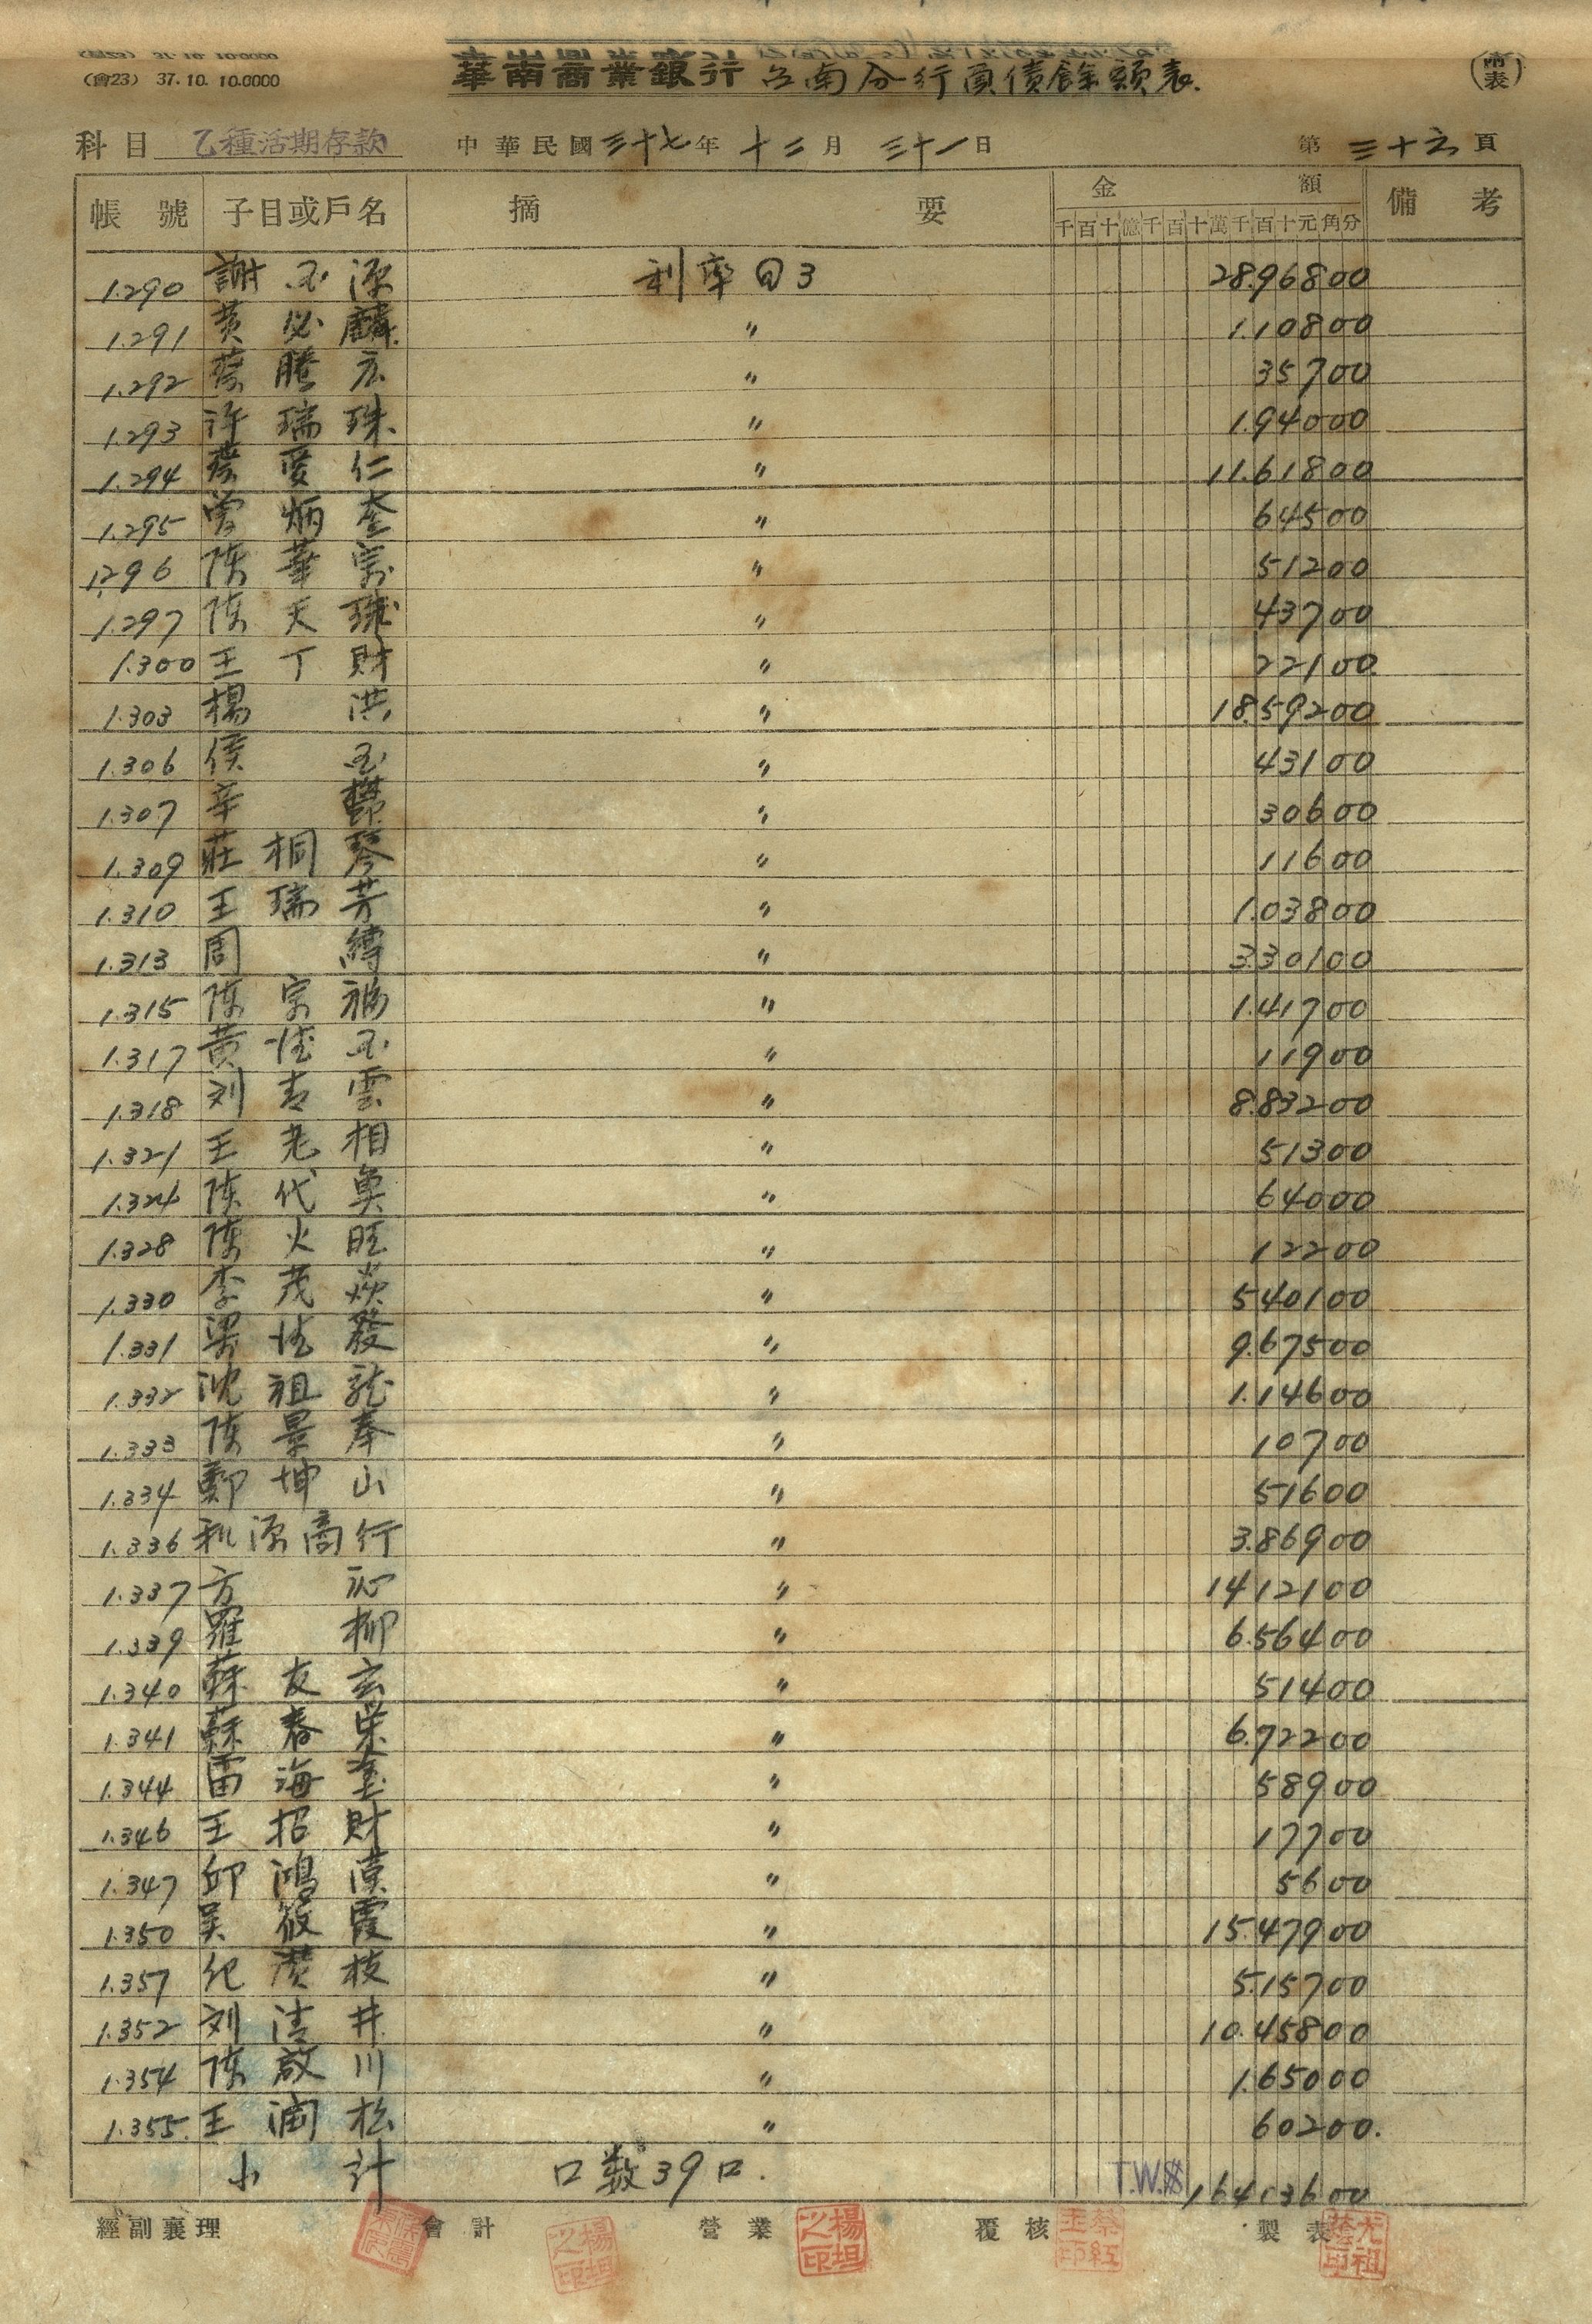 (會23) 37.10.10.0000
華南商業銀行 台南分行負債餘額表
(常表)
科目 乙種活期存款 中華民國三十七年十二月三十一日 第三十六頁
帳號 子目或戶名 摘要 金額 備考
千百十億千百十萬千百十元角分
1.290 謝玉源 利率日3 28.96800
1.291 黃必麟 〃 1.10800
1.292 蔡騰宏 〃 35700
1.293 許瑞珠 〃 1.94000
1.294 蔡愛仁 〃 11.61800
1.295 曾炳奎 〃 64500
1.296 陈華宗 〃 51200
1.297 陈天球 〃 43700
1.300 王丁財 〃 22100
1.303 楊洪 〃 18.59200
1.306 侯玉 〃 43100
1.307 辛欎 〃 30600
1.309 莊桐琴 〃 11600
1.310 王瑞芳 〃 1.03800
1.313 周縛 〃 3.30100
1.315 陈宗福 〃 1.41700
1.317 黃惶玉 〃 11900
1.318 刘青雲 〃 8.83200
1.321 王老相 〃 51300
1.324 陈代魚 〃 64000
1.328 陈火旺 〃 12200
1.330 李茂焱 〃 5.40100
1.331 梁 發 〃 9.67500
1.332 沈祖龍 〃 1.14600
1.333 陈景奉 〃 10700
1.334 鄭坤山 〃 51600
1.336 利源商行 〃 3.86900
1.337 方沁 〃 14.12100
1.339 羅柳 〃 6.56400
1.340 蘇友玄 〃 51400
1.341 蘇春荣 〃 6.72200
1.344 雷海奎 〃 58900
1.346 王招財 〃 17700
1.347 邱鴻漠 〃 5600
1.350 吴筱霞 〃 15.47900
1.357 紀濮枝 〃 5.15700
1.352 刘清井 〃 10.45800
1.354 陈啟川 〃 1.65000
1.355 王润松 〃 60200.
小計 口数39口. T.W.$ 16413600
經副襄理 會計 營業 覆核 製表
楊坦之印 楊坦之印